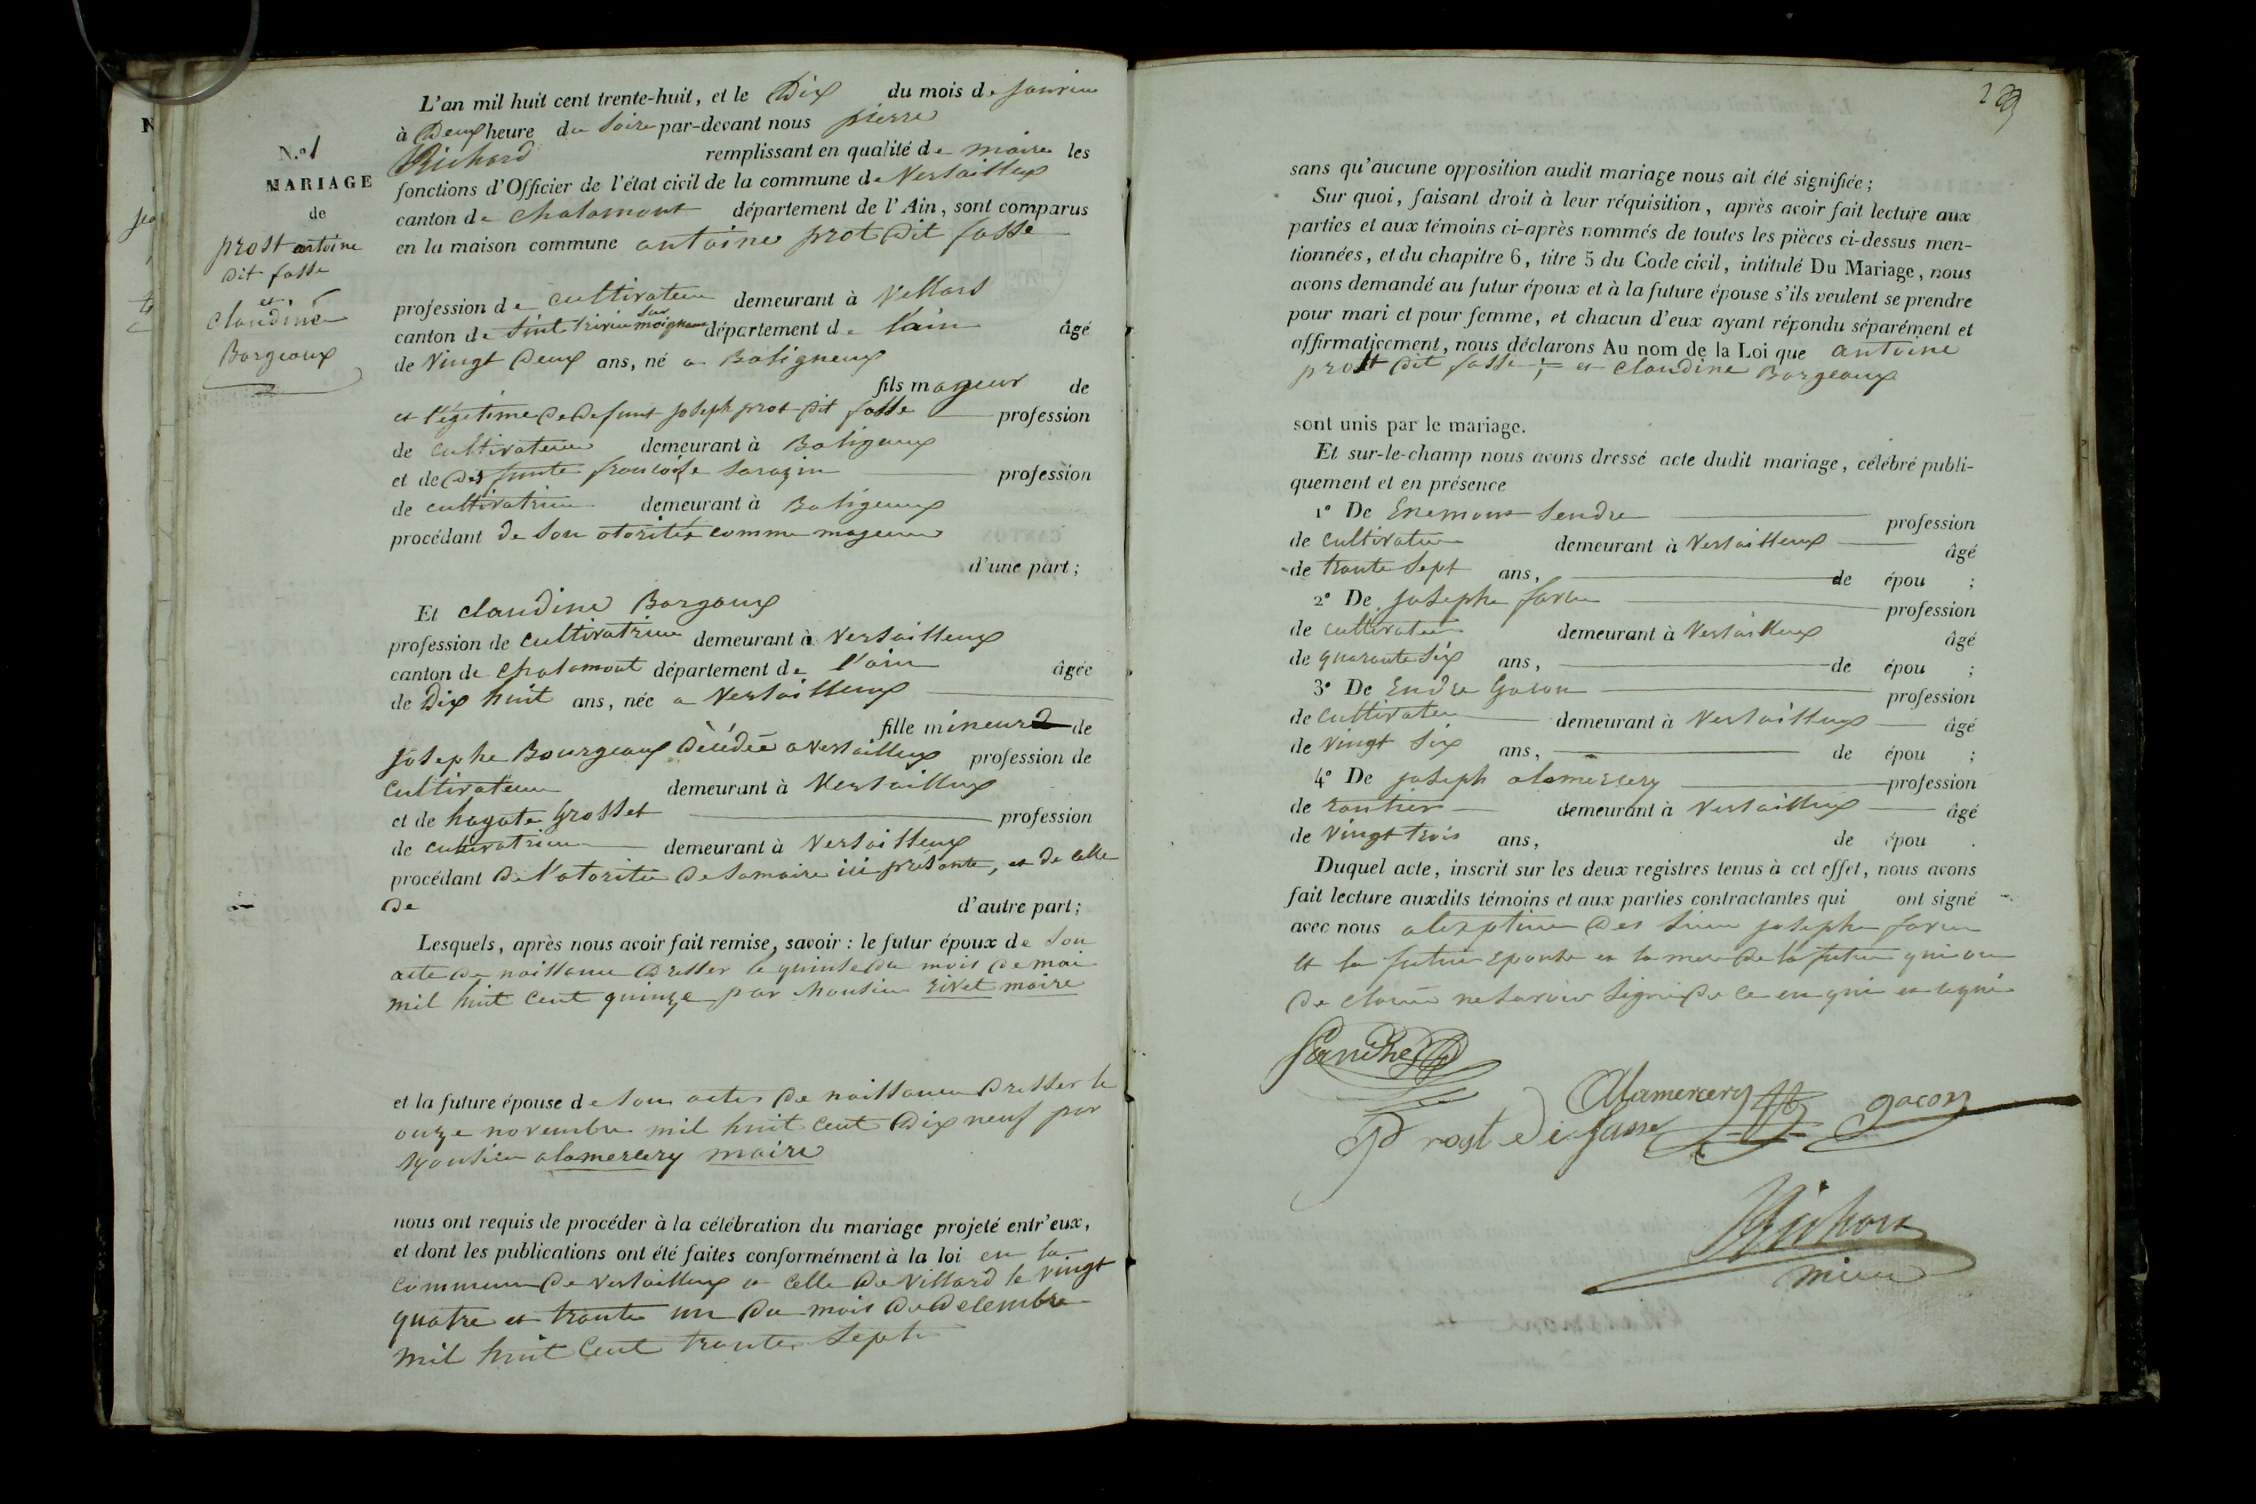 N.º 1
MARIAGE
de
prost antoine
dit fasse
et
claudine
Borgeaux
L'an mil huit cent trente-huit, et le Dix du mois de janvier
à Deux heure du Soire par-devant nous pierre
Richard remplissant en qualité de maire les
fonctions d'Officier de l'état civil de la commune de Versailleux
canton de chalamont département de l'Ain, sont comparus
en la maison commune antoine prot dit fasse
profession de cultivateur demeurant à Villars
sur
canton de Sint trivier moignans département de l'ain âgé
de Vingt Deux ans, né a Baligneux
fils mageur de
et légetime de defunt joseph prot dit fasse profession
de cultivateur demeurant à Baligneux
et de defunte francoise Sarazin profession
de cultivatrice demeurant à Baligeux
procédant de Son otorités comme mageure
d'une part;
Et claudine Borgaux
profession de cultivatrice demeurant à Versailleux
canton de chalamont département de l'ain âgée
de Dix huit ans, née a Versailleux
fille mineure de
josephe Bourgeaux décédée a Versailleux profession de
cultivateur demeurant à Versailleux
et de hagate Grosset profession
de cultivatrice demeurant à Versailleux
procédant de l'otoritée de Samaire ici présante, et de celle
de d'autre part;
Lesquels, après nous avoir fait remise, savoir : le futur époux de Son
acte de naissance dresser le quinse du mois de mai
mil huit cent quinze par Monsieur rivet maire
et la future épouse de Son actes de naissance dresser le
onze novembre mil huit cent Dix neuf par
Monsieur alamercery maire
nous ont requis de procéder à la célébration du mariage projeté entr'eux,
et dont les publications ont été faites conformément à la loi en la
commune de Versailleux a celle de Villard le vingt
quatre et trante un du mois de decembre
mil huit Cent trante Sept
229
sans qu'aucune opposition audit mariage nous ait été signifiée;
Sur quoi, faisant droit à leur réquisition, après avoir fait lecture aux
parties et aux témoins ci-après nommés de toutes les pièces ci-dessus men-
tionnées, et du chapitre 6, titre 5 du Code civil, intitulé Du Mariage, nous
avons demandé au futur époux et à la future épouse s'ils veulent se prendre
pour mari et pour femme, et chacun d'eux ayant répondu séparément et
affirmativement, nous déclarons Au nom de la Loi que antoine
prost dit fasse; et claudine Borgeaux
sont unis par le mariage.
Et sur-le-champ nous avons dressé acte dudit mariage, célébré publi-
quement et en présence
1º De Enemont Sendre profession
de cultivateur demeurant à Versailleux âgé
de trante Sept ans, de épou ;
2º De josephe farue profession
de cultivateur demeurant à Versailleux âgé
de quarante Six ans, de épou ;
3º De Endre Gacon profession
de cultivateur demeurant à Versailleux âgé
de vingt Six ans, de épou ;
4º De joseph alamercery profession
de rantier demeurant à Versailleux âgé
de vingt trois ans, de épou .
Duquel acte, inscrit sur les deux registres tenus à cet effet, nous avons
fait lecture auxdits témoins et aux parties contractantes qui ont signé
avec nous a lexption des Sieur josephe farue
et la future eponse et la mere de la future qui on
de claree ne Savoir Signé de ce en qui et requis
Sandre
Alamercery
gacon
Prost di fasse
Richard
maire